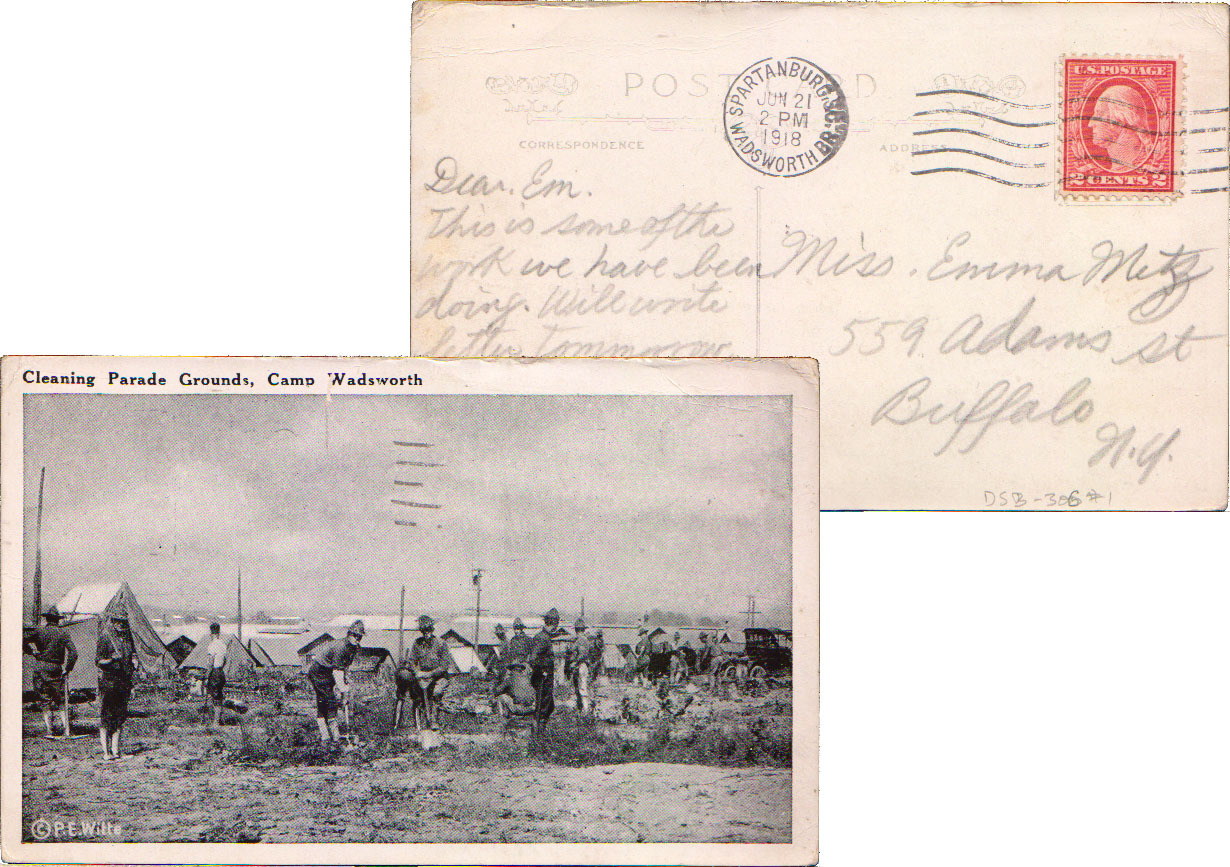 POST CARD
CORRESPONDENCE
ADDRESS
SPARTANBURG, S.C.
JUN 21
2 PM
1918
WADSWORTH BR.
U.S. POSTAGE
2 CENTS 2
Dear. Em.
This is some of the
work we have been
doing. Will write
letter Tommorow
Miss. Emma Metz
559 Adams st
Buffalo
N.Y.
DSB-306 #1
Cleaning Parade Grounds, Camp Wadsworth
© P.E. Wilte